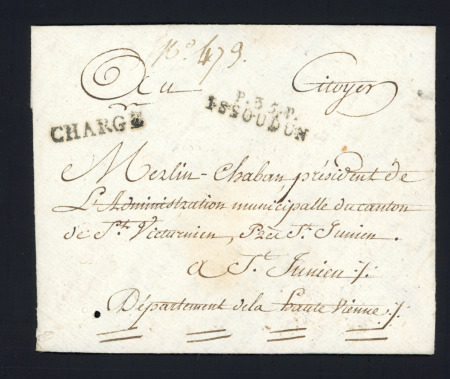 No. 473.
Au Citoyen
P.35.P.
ISSOUDUN
CHARGÉ
Merlin-Chaban président de
L'Administration municipalle du canton
de St. Victurnien, Près St. Junien.
a St. Junien /.
Département de la haute Vienne /.